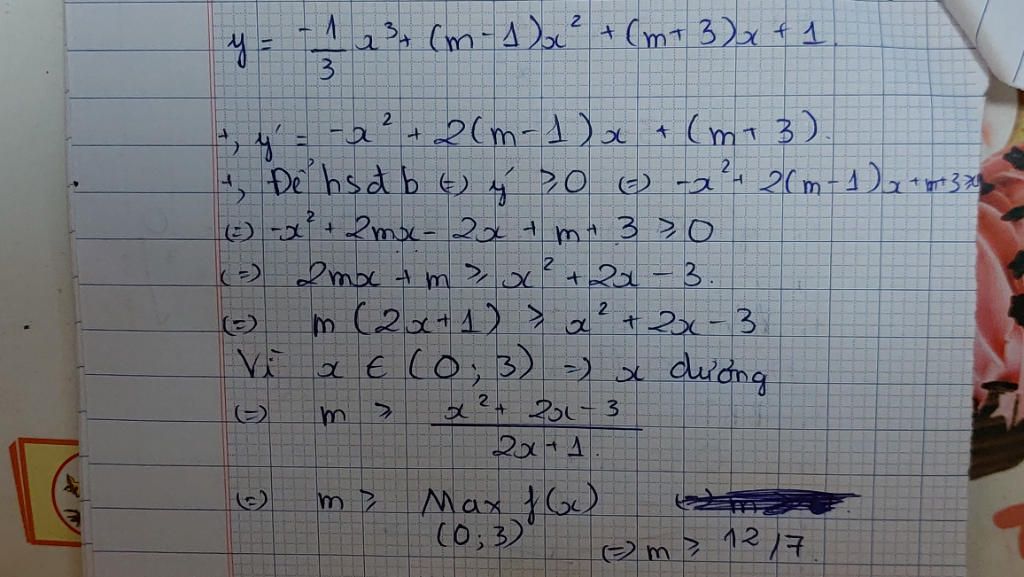 y = -1/3 x³ + (m-1)x² + (m+3)x + 1.
+, y' = -x² + 2(m-1)x + (m+3).
+, Để hsđb (=) y' ≥ 0 (=) -x² + 2(m-1)x + m+3 ≥ 0
(=) -x² + 2mx - 2x + m + 3 ≥ 0
(=) 2mx + m ≥ x² + 2x - 3.
(=) m(2x+1) ≥ x² + 2x - 3
Vì x ∈ (0; 3) => x dương
(=) m ≥ (x² + 2x - 3)/(2x + 1).
(=) m ≥ Max f(x)
(0; 3) (=) m ≥ 12/7.